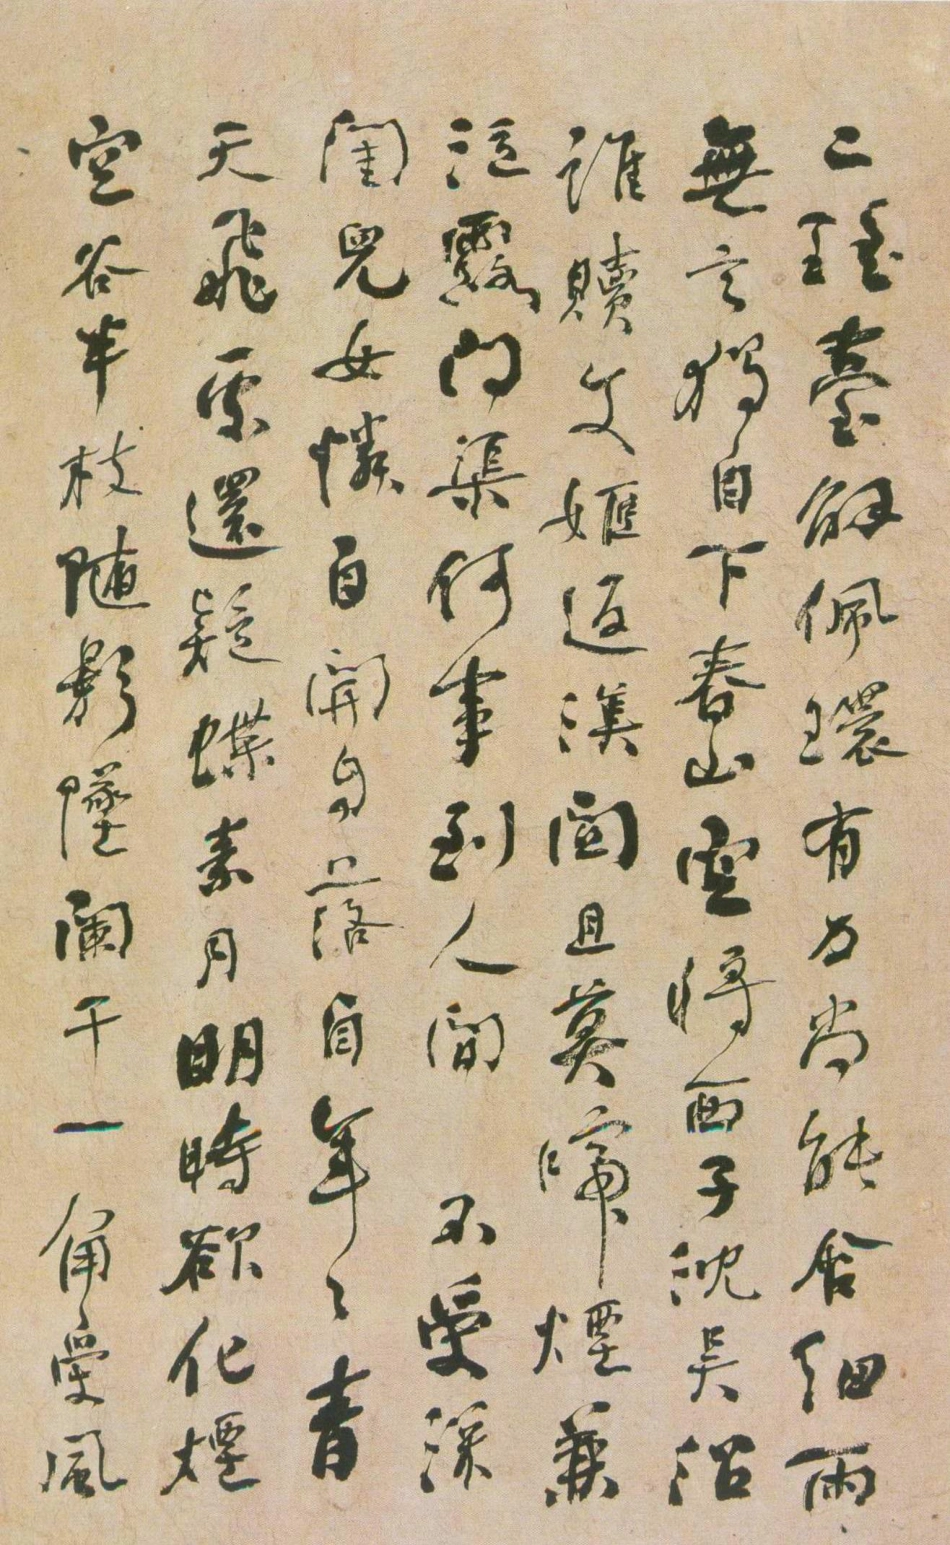 二瑤臺解佩環有力尚能含細雨
無言獨自下春山空將西子沈吳沼
誰贖文姬返漢關且莫啼煙兼
泣露問渠何事到人間　不受深
閨兒女憐自開自落自年ゝ青
天飛處還疑蝶素月明時欲化煙
空谷半枝隨影墜闌干一角受風